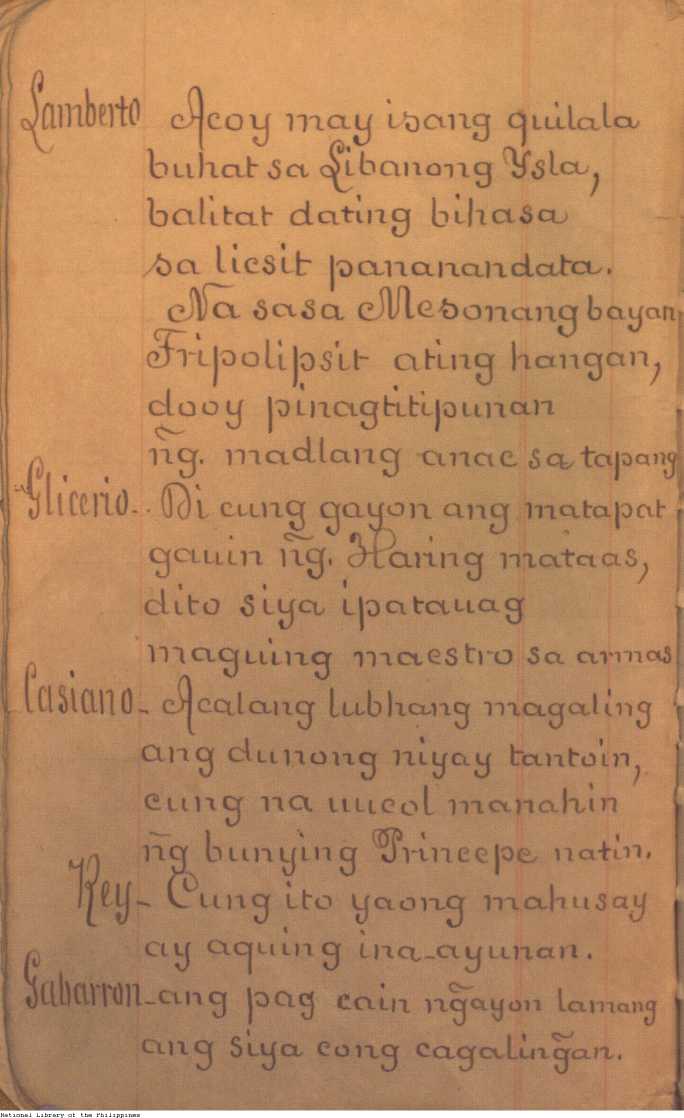 Lamberto Acoy may isang quilala
buhat sa Libanong Ysla,
balitat dating bihasa
sa licsit pananandata.
Na sasa Mesonang bayan,
Fripolipsit ating hangan,
dooy pinagtitipunan
ñg. madlang anac sa tapang
Glicerio-. Di cung gayon ang matapat
gauin ñg. Haring mataas,
dito siya ipatauag
maguing maestro sa armas
Casiano- Acalang lubhang magaling
ang dunong niyay tantoin,
cung na uucol manahin
ñg bunying Princepe natin.
Rey- Cung ito yaong mahusay
ay aquing ina-ayunan.
Gabarron-ang pag cain ng̃ayon lamang
ang siya cong cagaling̃an.
National Library of the Philippines